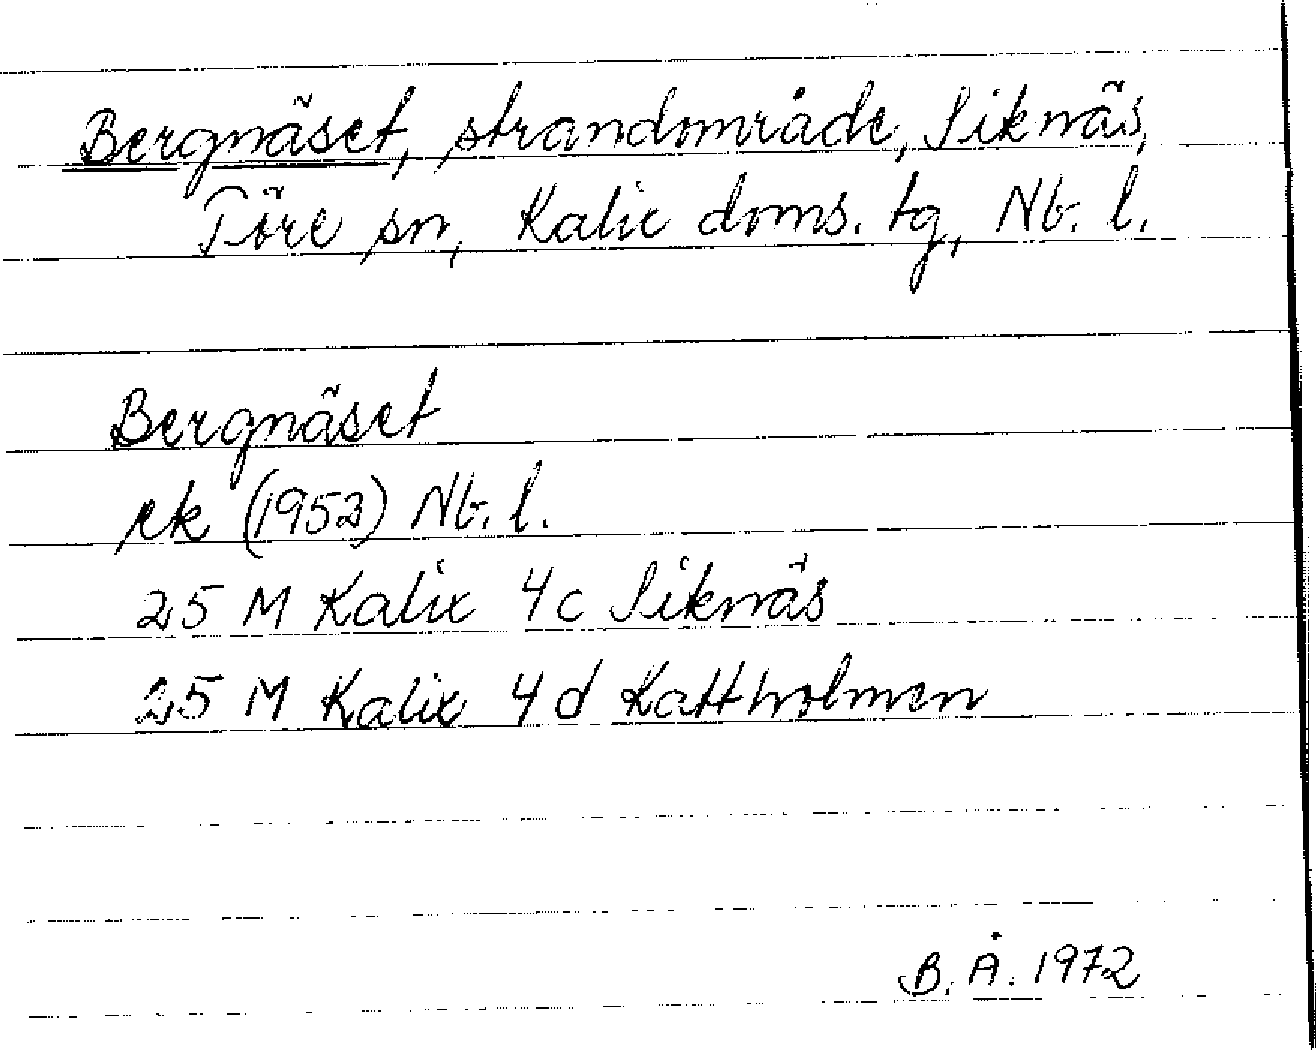 Bergnäset, strandområde, Siknäs,
Töre sn, Kalix doms. tg, Nb. l.
Bergnäset
ek (1952) Nb. l.
25 M Kalix 4c Siknäs
25 M Kalix 4d Kattholmen
B. Å. 1972